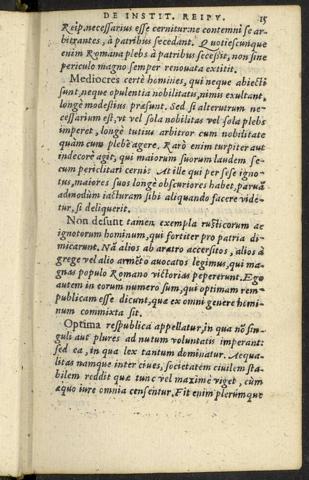 DE INSTIT. REIPV. 15
Reip. necessarius esse cernitur: ne contemni se ar-
bitrantes, à patribus secedant. Quotiescunque
enim Romana plebs à patribus secessit, non sine
periculo magno semper renouata extitit.
Mediocres certè homines, qui neque abiecti
sunt, neque opulentia nobilitatis, nimis exultant,
longè modestius præsunt. Sed si alterutrum ne-
cessarium est, vt vel sola nobilitas vel sola plebs
imperet, longè tutius arbitror cum nobilitate
quàm cum plebe agere. Rarò enim turpiter aut
indecorè agit, qui maiorum suorum laudem se-
cum periclitari cernit. At ille qui per se se igno-
tus, maiores suos longè obscuriores habet, paruã
admodum iacturam sibi aliquando facere vide-
tur, si deliquerit.
Non desunt tamen exempla rusticorum ac
ignotorum hominum, qui fortiter pro patria di-
micarunt. Nã alios ab aratro accersitos, alios à
grege vel alio armẽto auocatos legimus, qui ma-
gnas populo Romano victorias pepererunt. Ego
autem in eorum numero sum, qui optimam rem-
publicam esse dicunt, quæ ex omni genere homi-
num commixta sit.
Optima respublica appellatur, in qua nõ sin-
guli aut plures ad nutum voluntatis imperant:
sed ea, in qua lex tantum dominatur. Aequa-
litas namque inter ciues, societatẽm ciuilem sta-
bilem reddit quæ tunc vel maximè viget, cùm
æquo iure omnia censentur. Fit enim plerumque